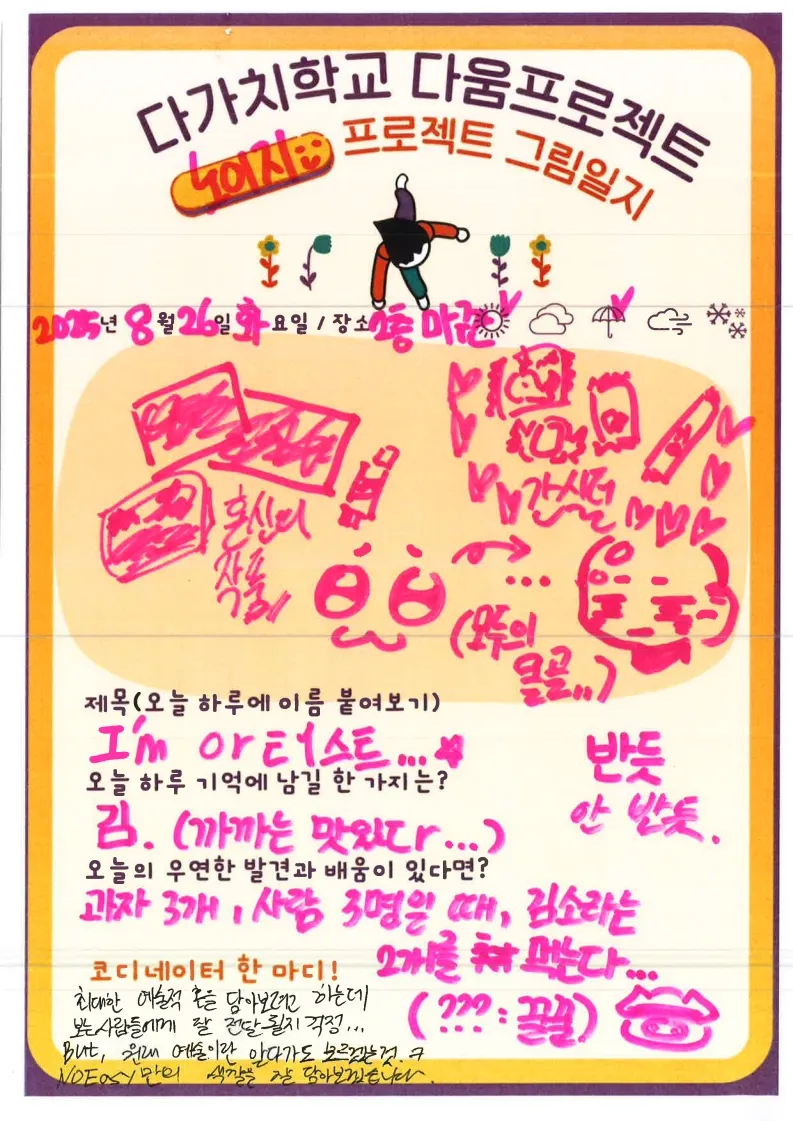 다가치학교 다움프로젝트
노이지 프로젝트 그림일지
2025년 8월 26일 화요일 / 장소 2층 마루
혼신의 작품
간식덜
(모두의 얼굴..)
제목(오늘 하루에 이름 붙여보기)
I'm or티스트...
오늘 하루 기억에 남길 한 가지는?
김. (까까는 맛있다...)
반듯
안 반듯.
오늘의 우연한 발견과 배움이 있다면?
과자 3개, 사람 3명일 때, 김소라는
2개를 먹는다...
(??? : 꿀꿀)
코디네이터 한 마디!
최대한 예술적 혼을 담아보려고 하는데
보는사람들에게 잘 전달될지 걱정...
But, 원래 예술이란 알다가도 모르겠는것.ㅋ
NOEasy만의 색깔을 잘 담아보겠습니다.